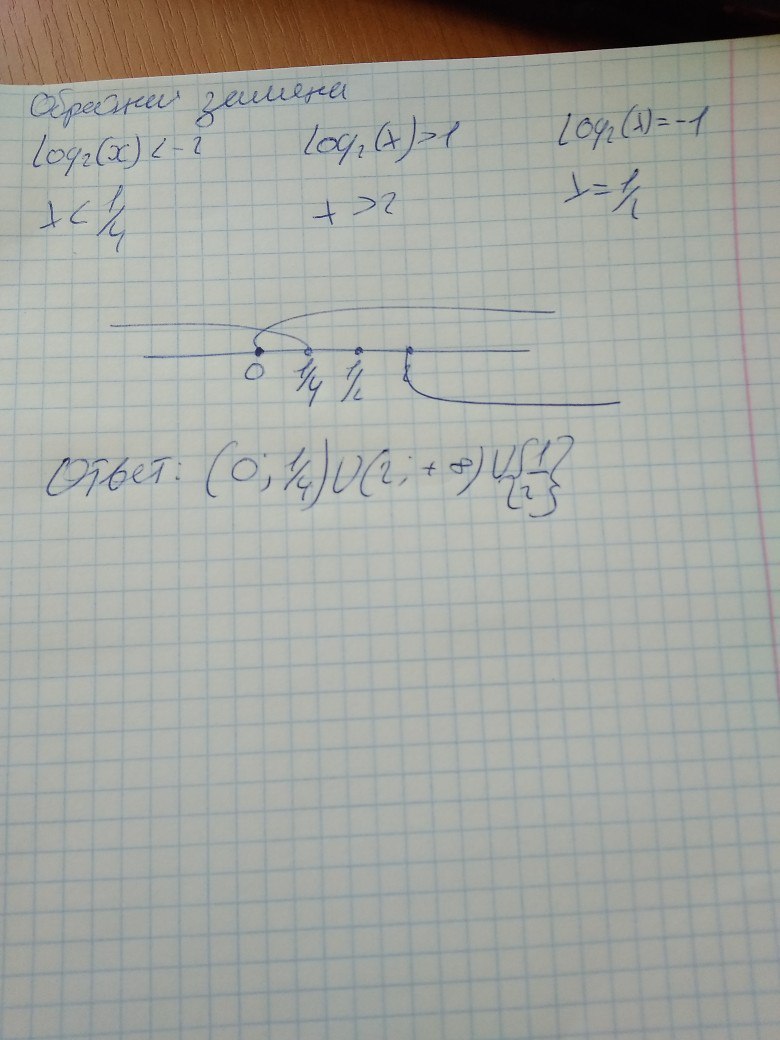 Обратная замена
log₂(x) < -2 log₂(x) > 1 log₂(x) = -1
x < 1/4 x > 2 x = 1/2
0 1/4 1/2 2
Ответ: (0; 1/4) U (2; +∞) U {1/2}